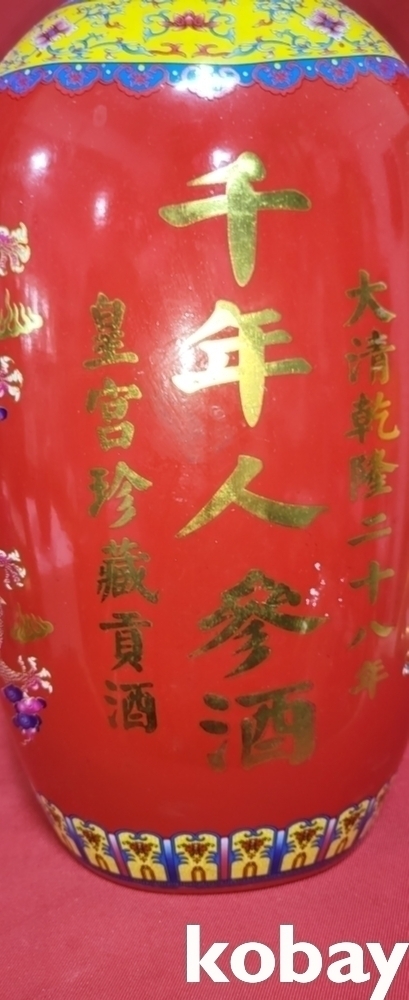 大清乾隆二十八年
千年人參酒
皇宮珍藏貢酒
kobay